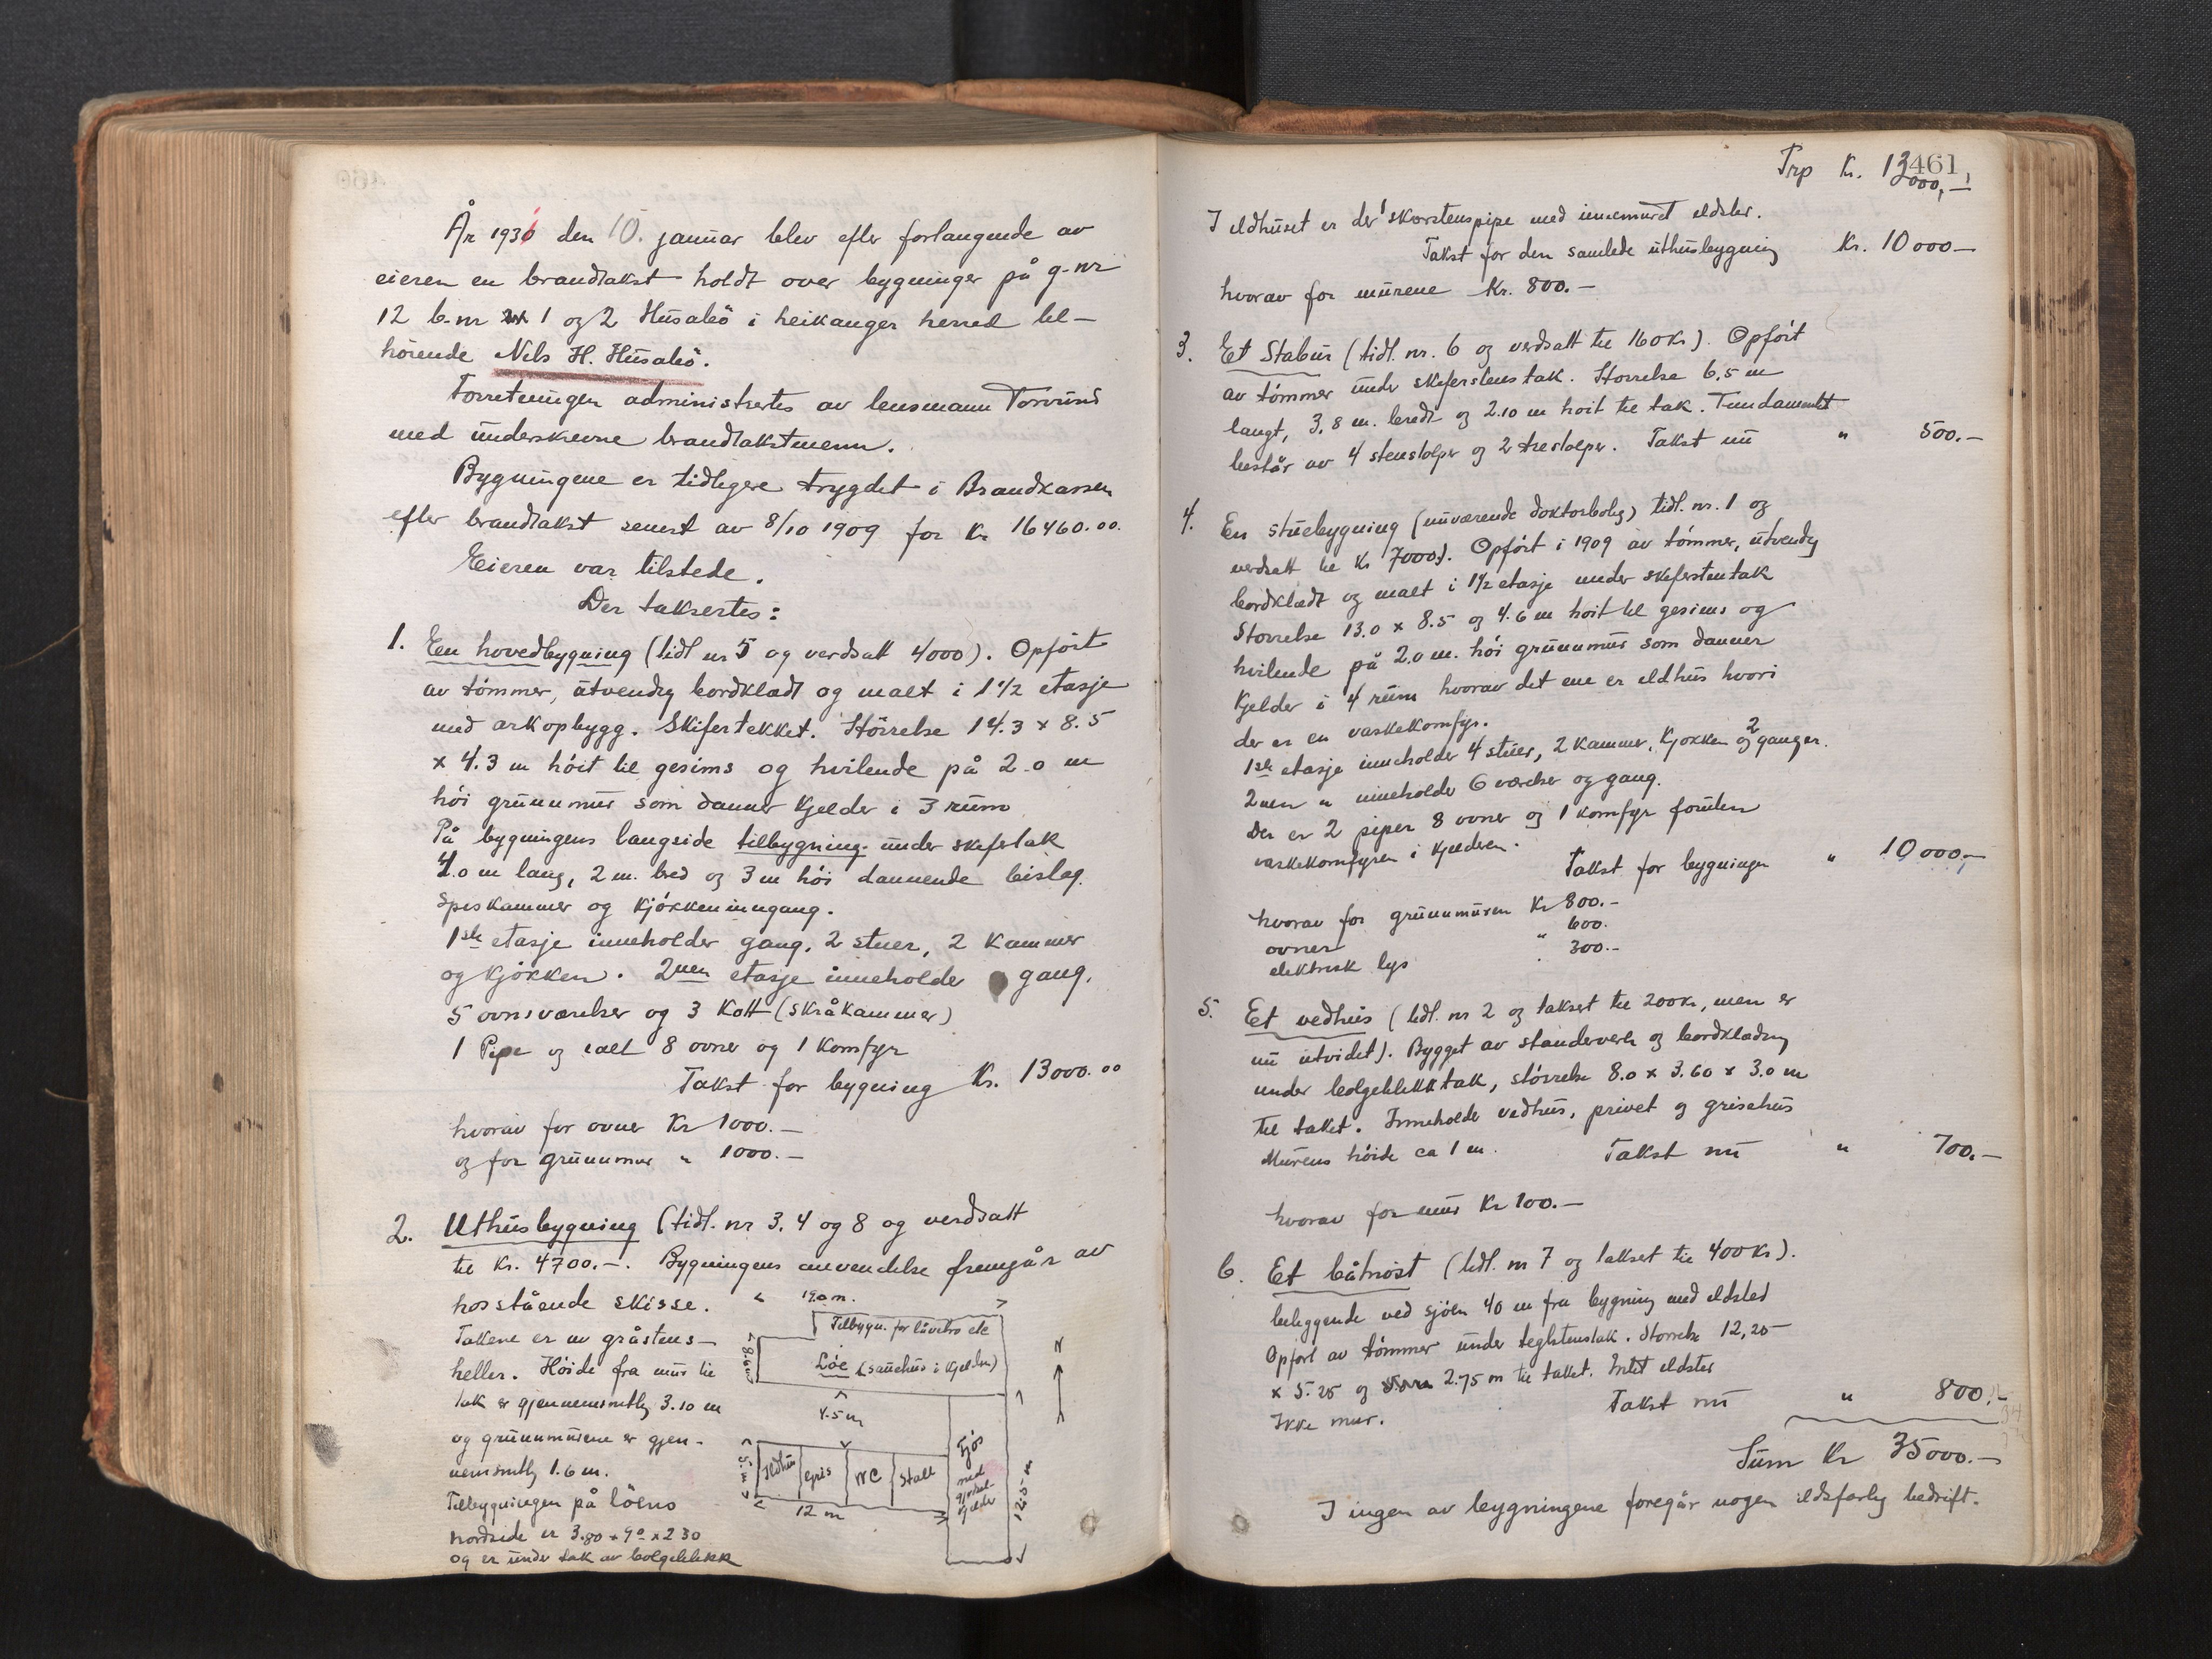 År 1931 den 10. januar blev efter forlangende av
eieren en brandtakst holdt over bygninger på g-nr
12 b.nr 1 og 2 Husabö i Leikanger herred til-
hörende Nils H. Husabö.
Forretningen administrertes av lensmann Torvund
med underskrevne brandtakstmenn.
Bygningene er tidligere trygdet i Brandkassen
efter brandtakst senest av 8/10 1909 for Kr 16460.00.
Eieren var tilstede.
Der taksertes:
1. En hovedbygning (tidl nr 5 og verdsatt 4000). Opfört
av tömmer, utvendig bordklædt og malt i 1 1/2 etasje
med arkopbygg. Skifertekket. Störrelse 14.3 x 8.5
x 4.3 m höit til gesims og hvilende på 2.0 m
höi grunnmur som danner Kjelder i 3 rum
På bygningens langside tilbygning under skifertak
4.0 m lang, 2 m. bred og 3 m höi dannende bislag
Spiskammer og Kjökkeninngang.
1ste etasje inneholder gang, 2 stuer, 2 Kammer
og Kjökken. 2nen etasje inneholder gang,
5 ovnsværelser og 3 Kott (skråkammer)
1 Pipe og ialt 8 ovner og 1 Komfyr
Takst for bygning Kr. 13000.00
hvorav for ovner Kr 1000.—
og for grunnmur " 1000.—
2. Uthusbygning (tidl. nr 3, 4 og 8 og verdsatt
til Kr. 4700.—. Bygningens anvendelse fremgår av
hosstående skisse.
Takene er av gråstens-
heller. Höide fra mur til
tak er gjennemsnitlig 3.10 m
og grunnmurene er gjen-
nemsnitlig 1.6 m.
Tilbygningen på löens
nordside er 3.80 x 9.0 x 2.30
og er under tak av bölgeblikk
19.0 m.
Tilbygn. for låvebro etc
8.6 m
Löe (sauehus i Kjelder)
N
4.5 m
5.3 m
Ildhus
gris
WC
Stall
Fjös
med
gjödsel-
Kjelder
12 m
12.5 m
461
Trp Kr. 13000,—
I eldhuset er der 1 skorstenspipe med innemuret eldster.
Takst for den samlede uthusbygning Kr. 10000—
hvorav for murene Kr. 800.—
3. Et Stabur (tidl. nr. 6 og verdsatt til 160 Kr). Opfört
av tömmer under skiferstens tak. Störrelse 6,5 m
langt, 3.8 m. bredt og 2.10 m höit til tak. Fundamentet
består av 4 stenstolper og 2 trestolper. Takst nu " 500.—
4. En stuebygning (nuværende doktorbolig) tidl. nr. 1 og
verdsatt til Kr 7000). Opfört i 1909 av tömmer, utvendig
bordklædt og malt i 1 1/2 etasje under skiferstentak
Störrelse 13.0 x 8.5 og 4.6 m höit til gesims og
hvilende på 2.0 m. höi grunnmur som danner
Kjelder i 4 rum hvorav det ene er eldhus hvori
der er en vaskekomfyr.
1ste etasje inneholder 4 stuer, 2 Kammer, Kjökken og 2 ganger.
2nen " inneholder 6 værelser og gang.
Der er 2 piper 8 ovner og 1 Komfyr foruten
vaskekomfyren i Kjelderen.
Takst for bygningen " 10000,—
hvorav for grunnmuren Kr 800.—
ovner " 600.
elektrisk lys " 300.—
5. Et vedhus (tidl. nr 2 og takset til 200 Kr, men er
nu utvidet). Bygget av standerverk og bordklædning
under bölgeblikktak, störrelse 8.0 x 3.60 x 3.0 m
til taket. Inneholder vedhus, privet og grisehus
Murens höide ca 1 m. Takst nu " 700.—
hvorav for mur Kr 100.—
6. Et båtnöst (tidl. nr 7 og takset til 400 Kr).
beliggende ved sjöen 40 m fra bygning med eldsted
Opfört av tömmer under teglstenstak. Störrelse 12,25
x 5.25 og 2.75 m til taket. Intet eldster
Ikke mur. Takst nu " 800.—
Sum Kr 35000.—
I ingen av bygningene foregår nogen ildsfarlig bedrift.